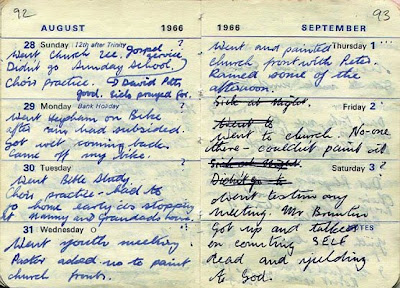 92
AUGUST 1966
28 Sunday (12th after Trinity) ?
Went Church ice. Gospel service
Didn't go Sunday School
Choir practice. → David Potts
good. Sick prayed for.
29 Monday Bank Holiday ?
Went Heysham on Bike
after rain had subsided.
Got wet coming back
Came off my bike.
30 Tuesday ?
Went Bible Study
Choir practice - had to
go home early cos stopping
at Nanny and Grandads house.
31 Wednesday
Went youth meeting.
Pastor asked us to paint
church fronts.
93
1966 SEPTEMBER
Thursday 1
Went and painted
church front with Peter.
Rained some of the
afternoon.
Sick at night.
Friday 2
Went to
Went to church. No-one
there - couldn't paint it
Sick at night.
Saturday 3 ?
Didn't go to
Went testimony
meeting. Mr. Brunton
NOTES
Got up and talked
on counting SELF
dead and yielding
to God.